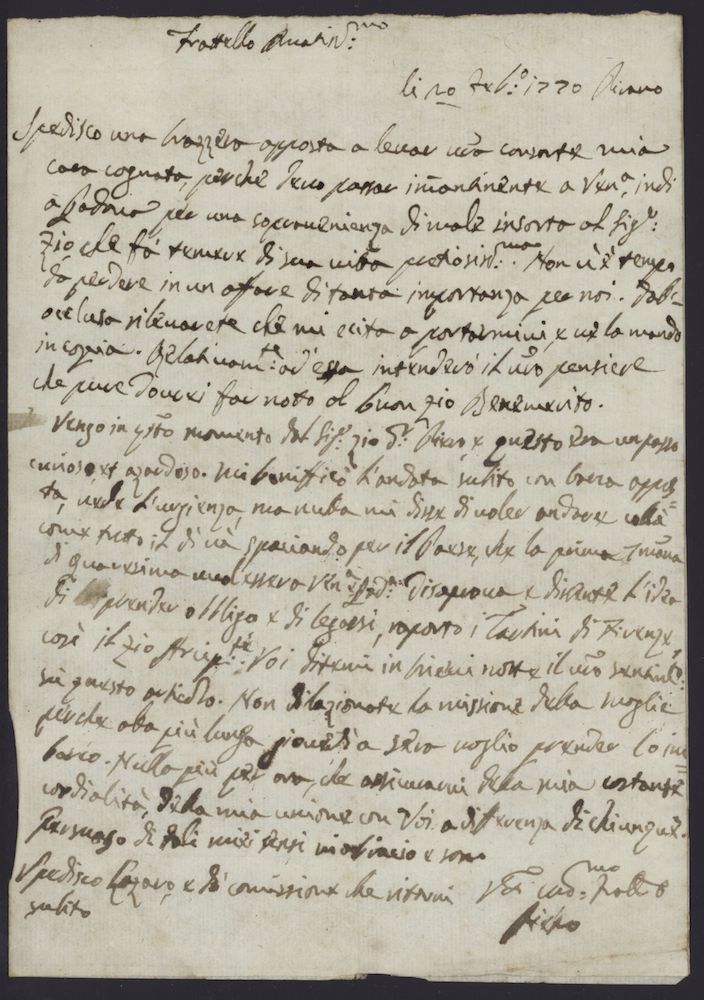 Frattello Amatiss.mo
li 20 Feb.o 1770 Pirano
Spedisco una brazzera apposta a levar vra consorte mia
cara cognata, perche devo passar immantinente a Ven.a, indi
à Padova per una sopravenienza di male insorto al Sig.r
Zio che fà temere di sua vita pretiosiss.ma. Non v'è tempo
da perdere in un affare di tanta importanza per noi. Dall'
acclusa rileverete che mi ecita a portarmivi, e ve la mando
in coppia. Relativam.te ad essa intenderò il vro pensiere
che pure dovrei far noto al buon zio Benemerito.
Vengo in qsto momento dal Sig.r zio Piero, e questo era un passo
curioso, et azardoso. Mi benifficò l'andata subito con barca appos=
ta, vede l'urgienza, ma nulla mi disse di voler andare colà
come tutto il dì và spaciando per il Paese, che la prima 7mana
di quaresima vuol essere a Ven.a Pad.a Disaprova e disente l'idea
di prender obbligo e di legarsi, raporto i Tartini di Firenze,
così il zio Arcip.te. Voi ditemi in brievi notte il vro sentim.to
sù questo articolo. Non dilazionate la missione della moglie
perche alla più lunga giovedì a sera voglio prender lo im=
barco. Nulla più per ora, che assicurarvi della mia costante
cordialità, della mia unione con Voi a differenza di chiunque.
Persuaso di tali miei sensi vi abbracio e sono
Spedisco Lazaro, e dò comissione che ritorni
subito
V.ro aff.mo Fratello
Pietro